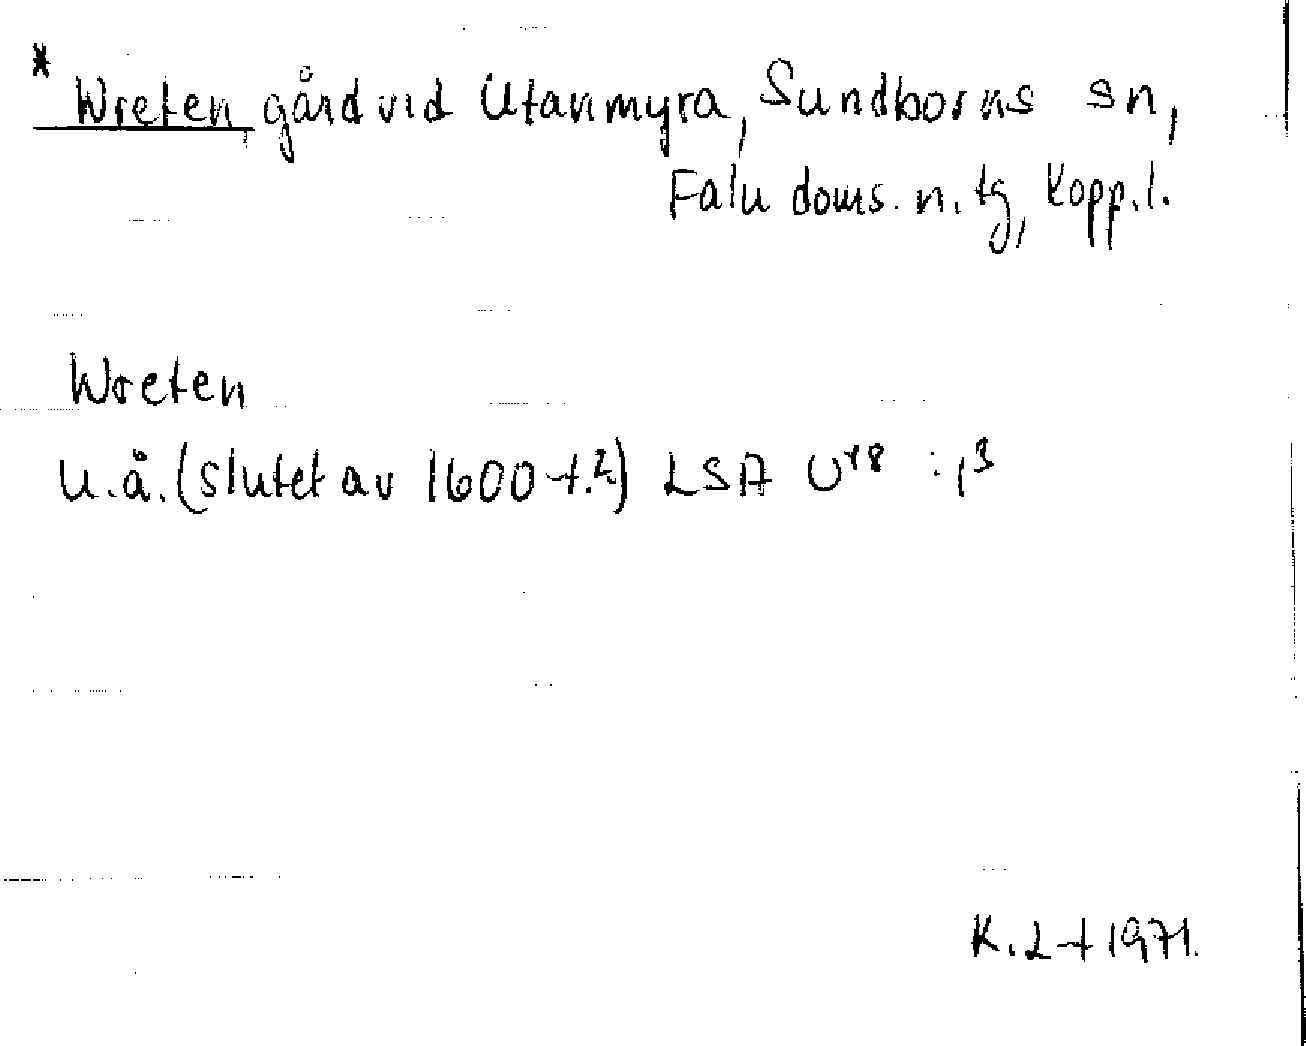 * Wreten, gård vid Utanmyra, Sundborns sn,
Falu doms. n. tg, Kopp. l.
Wreten
u.å. (slutet av 1600-t.?) LSA U48 :
K. 1971.